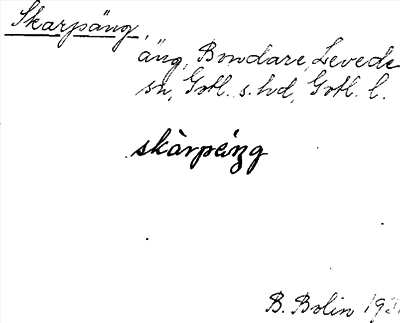 Skarpäng,
äng, Bondarve, Levede
sn, Gotl. s. hd, Gotl. l.
skàrpéŋg
B. Bolin